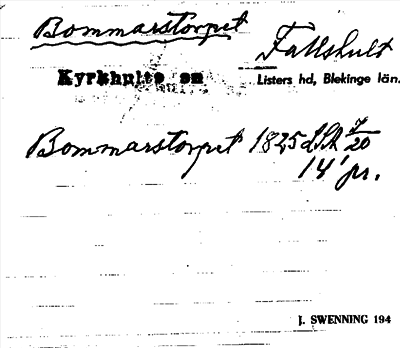 Bommarstorpet
Fallshult
Kyrkhults sn
Listers hd, Blekinge län.
Bommarstorpet 1825 LSA 7/20
14 pr.
J. SWENNING 194